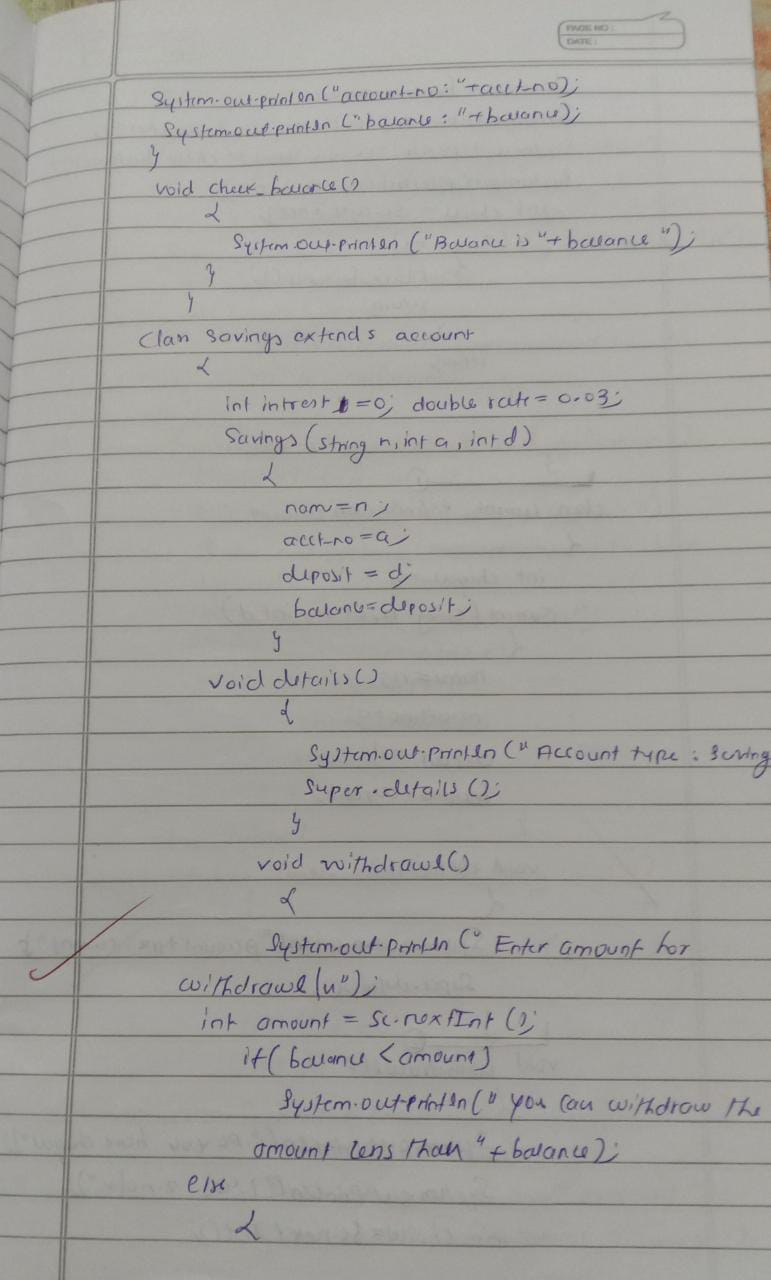 PAGE NO :
DATE :
System.out.println ("account-no: "+acct-no);
System.out.println ("balance : "+balance);
}
void check_balance()
{
System.out.println ("Balance is "+balance ");
}
}
Class Savings extends account
{
int intrest =0; double rate = 0.03;
Savings (string n, int a, int d)
{
nam = n;
acct-no = a;
deposit = d;
balance = deposit;
}
void details()
{
System.out.println (" Account type : Saving
Super.details ();
}
void withdrawl()
{
System.out.println (" Enter amount for
withdrawl \n");
int amount = Sc.nextInt ();
if( balance < amount)
System.out.println (" you can withdraw the
amount less than "+balance);
else
{